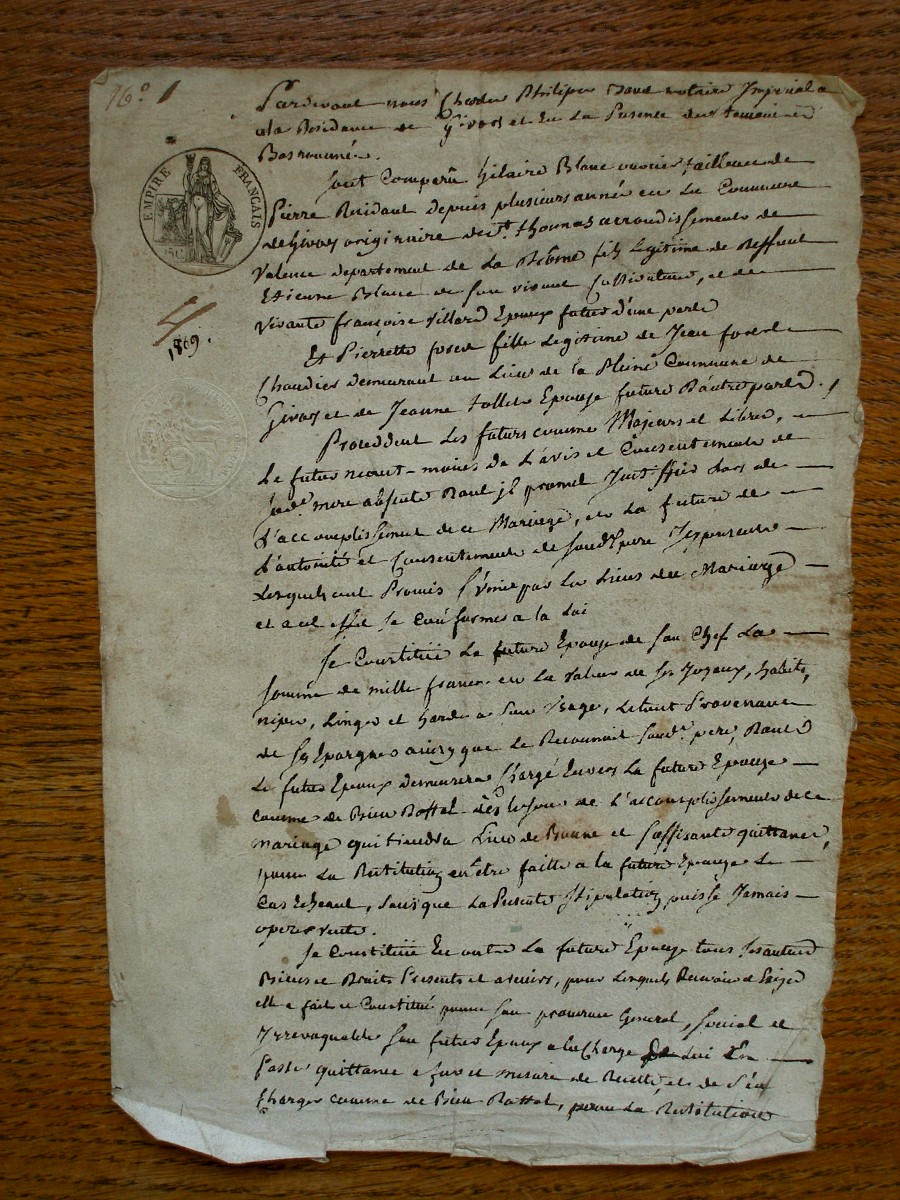 76c 1
Pardevant nous Charles Philippe notaire Impérial a
la Residance de Givors et en la Presence des temoins
Basnommés.
EMPIRE FRANÇAIS
Sont Comparu hilaire Blanc ouvrier tailleur de
Pierre Residant depuis plusieurs année en la Commune
de Givors originaire de St. thomas arrondissement de
Valence departement de la Drôme fils Legitime de deffunt
Etienne Blanc de son vivant Cultivateur, et de
vivante françoise villard Epoux futur d'une parts
1809.
Et Pierrette fille Legitime de Jean
demeurant au Lieu de la Commune de
Givors et de Jeanne Epouse future D'autre parts.
Proceddent les futurs comme Majeurs et Libres,
Le futur de L'avis et Consentement de
mere absente dont il promet Justiffier Lors de
L'accomplissement de ce Mariage, et La future de
L'autorité et Consentement de père Icy present
Lesquels ont Promis S'unir par les Liens du Mariage
et a cet effet se conformer a la Loi
Se Constitüe La future Epouse de son Chef La
somme de mille francs en la valeur de ses Joyaux, habits,
nipes, Linges et hardes a son Usage, Letout Provenant
de ses Epargnes ainsy que Le Reconnoit père, Dont
Le futur Epoux demeurera Chargé Envers La future Epouse
comme de Bien Dottal dès lejour de L'accomplissement de ce
mariage qui tiendra Lieu de Bonne et Suffisante quittance
pour La Restitution en être faitte a la future Epouse Le
Cas Echeant, Sans que La Presente Stipulation puisse Jamais
operer vente.
Se Constitüe En outre La future Epouse tous ses autres
Biens et Droits Presents et avenirs, pour Lesquels
elle fait et Constitüe pour son procureur General, special et
Irrevoquable son futur Epoux a la Charge de Lui En
Passer quittance et mesure de Recette et de s'en
Charger comme de Bien Dottal, pour La Restitution